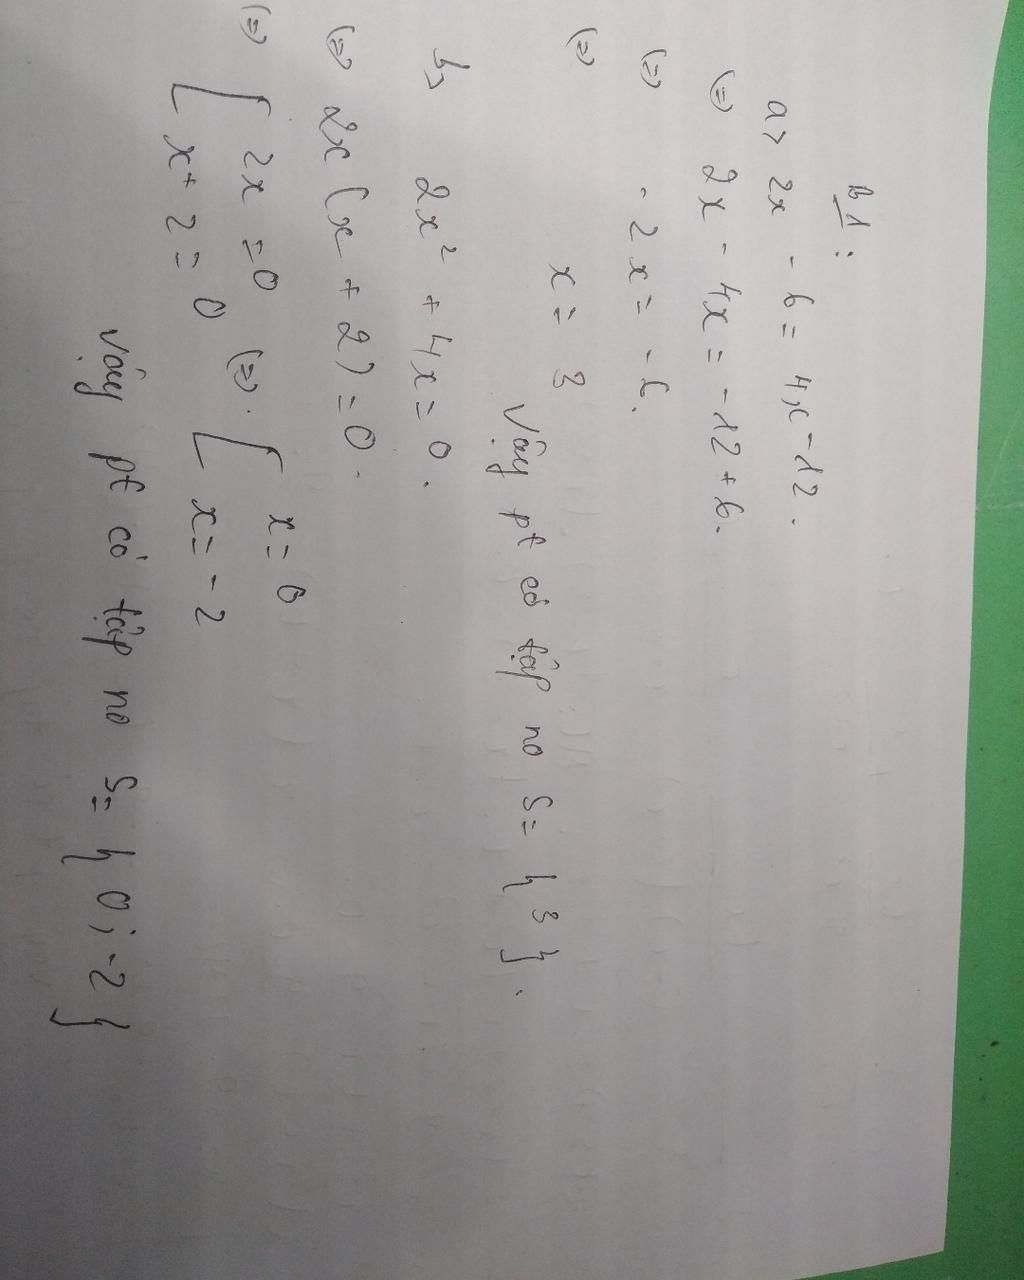 B1:
a> 2x - 6 = 4x - 12.
(=) 2x - 4x = -12 + 6.
(=) -2x = -6.
(=) x = 3
Vậy pt có tập no S = {3}.
b> 2x² + 4x = 0.
(=) 2x (x + 2) = 0.
(=) [ 2x = 0 (=) [ x = 0
x + 2 = 0 x = -2
Vậy pt có tập no S = {0; -2}